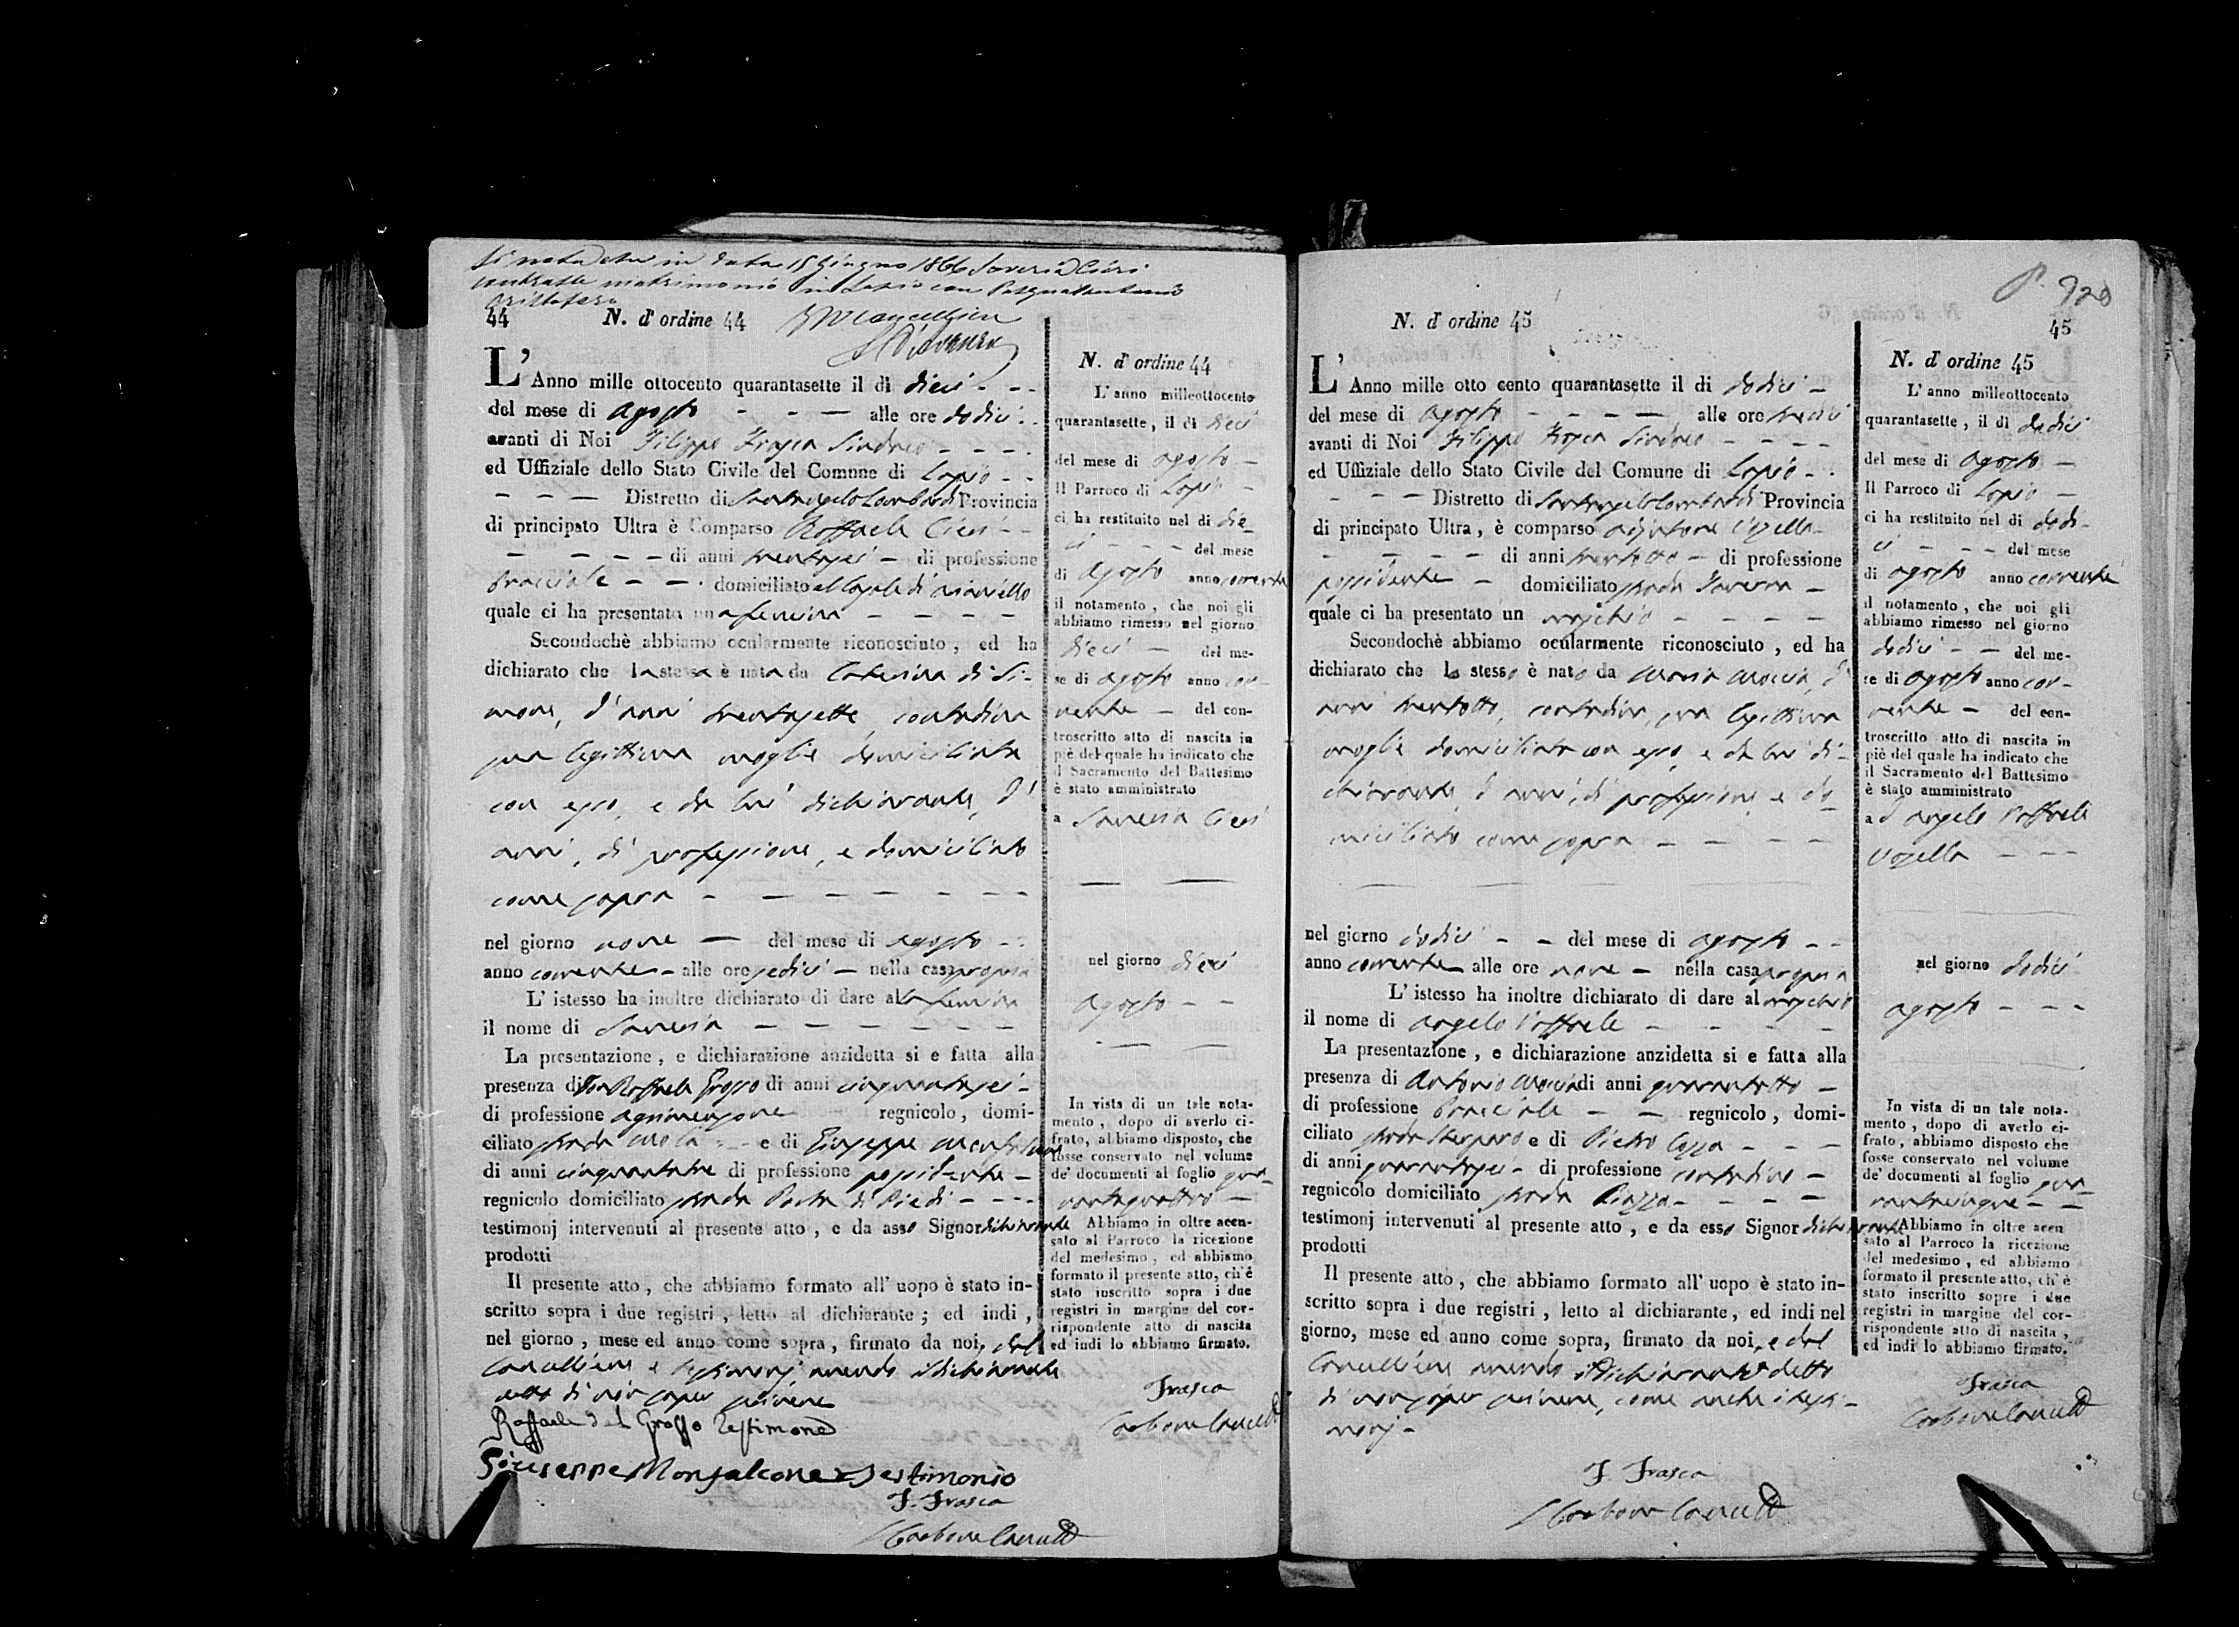 Si nota che in data 15 Giugno 1866 Saveria Cieri
contrasse matrimonio in Lapio con Pasqualantonio
44 N. d' ordine 44
Il Cancelliere
L' Anno mille ottocento quarantasette il di dieci - - -
del mese di Agosto - - — alle ore dodici - -
avanti di Noi Filippo Frasca Sindaco - - - -
ed Uffiziale dello Stato Civile del Comune di Lapio - -
- - — Distretto di Santangelo Lombardi Provincia
di principato Ultra è Comparso Raffaele Cieri - -
— - - - di anni trentasei - di professione
bracciale - - - domiciliato al Casale di
quale ci ha presentato una femina - - - -
Secondochè abbiamo ocularmente riconosciuto, ed ha
dichiarato che la stessa è nata da Caterina di Si-
mone, d'anni trentasette, contadina
sua legittima moglie domiciliata
con esso, e da lui dichiarante, d'
anni, di professione, e domiciliato
come sopra - - - - - - - -
nel giorno nove — del mese di Agosto - -
anno corrente - alle ore sedici - nella casa propria
L' istesso ha inoltre dichiarato di dare alla femina
il nome di Saveria - - - - - - -
La presentazione, e dichiarazione anzidetta si e fatta alla
presenza di Don Raffaele Grosso di anni cinquantasei -
di professione agrimensore regnicolo, domi-
ciliato strada - - e di Giuseppe Monfalcone
di anni cinquantatre di professione possidente -
regnicolo domiciliato strada Porta di Piedi - - - -
testimonj intervenuti al presente atto, e da asso Signor dichiarante
prodotti
Il presente atto, che abbiamo formato all' uopo è stato in-
scritto sopra i due registri, letto al dichiarante; ed indi,
nel giorno, mese ed anno come sopra, firmato da noi, dal
Cancelliere e testimonj avendo il dichiarante
detto di non saper scrivere
Raffaele del Grosso Testimone
Giuseppe Monfalcone Testimonio
F. Frasca
Carbone Cancell
N. d' ordine 44
L' anno milleottocento
quarantasette, il di dieci
del mese di Agosto —
Il Parroco di Lapio -
ci ha restituito nel di die-
ci - - - del mese
di Agosto anno corrente
il notamento, che noi gli
abbiamo rimesso nel giorno
dieci - del me-
se di Agosto anno cor-
rente - del con-
troscritto atto di nascita in
piè del quale ha indicato che
il Sacramento del Battesimo
è stato amministrato
a Saveria Cieri
nel giorno dieci
Agosto - -
In vista di un tale nota-
mento, dopo di averlo ci-
frato, abbiamo disposto, che
fosse conservato nel volume
de' documenti al foglio qua-
rantaquattro -
Abbiamo in oltre accu-
sato al Parroco la ricezione
del medesimo, ed abbiamo
formato il presente atto, ch'è
stato inscritto sopra i due
registri in margine del cor-
rispondente atto di nascita
ed indi lo abbiamo firmato.
Frasca
Carbone Cancell
45
N. d' ordine 45
L' Anno mille otto cento quarantasette il di dodici -
del mese di Agosto - - - — alle ore tredici
avanti di Noi Filippo Frasca Sindaco - - - -
ed Uffiziale dello Stato Civile del Comune di Lapio - -
- - - Distretto di Santangelo Lombardi Provincia
di principato Ultra, è comparso Uzzella -
- - - - di anni trentotto - di professione
possidente - domiciliato strada Taverna -
quale ci ha presentato un maschio - - - -
Secondochè abbiamo ocularmente riconosciuto, ed ha
dichiarato che lo stesso è nato da Maria Moccia, di
anni trentotto, contadina, sua legittima
moglie domiciliata con esso, e da lui di-
chiarante, d'anni, di professione, e do-
miciliato come sopra - - - -
nel giorno dodici - - del mese di Agosto - -
anno corrente alle ore nove - nella casa propria
L' istesso ha inoltre dichiarato di dare al maschio
il nome di Angelo Raffaele - - - -
La presentazione, e dichiarazione anzidetta si e fatta alla
presenza di Antonio Moccia di anni quarantotto -
di professione Bracciale - - regnicolo, domi-
ciliato strada e di Pietro - - -
di anni quarantasei - di professione contadino -
regnicolo domiciliato strada Piazza - - - -
testimonj intervenuti al presente atto, e da esso Signor dichiarante
prodotti
Il presente atto, che abbiamo formato all' uopo è stato in-
scritto sopra i due registri, letto al dichiarante, ed indi nel
giorno, mese ed anno come sopra, firmato da noi, e dal
Cancelliere avendo il dichiarante detto
di non saper scrivere, come anche i testi-
monj -
F. Frasca
Carbone Cancell
N. d' ordine 45
L' anno milleottocento
quarantasette, il di dodici
del mese di Agosto -
Il Parroco di Lapio -
ci ha restituito nel di dodi-
ci - - - del mese
di Agosto anno corrente
il notamento, che noi gli
abbiamo rimesso nel giorno
dodici - - del me-
se di Agosto anno cor-
rente - del con-
troscritto atto di nascita in
piè del quale ha indicato che
il Sacramento del Battesimo
è stato amministrato
a d Angelo Raffaele
Uzzella - - -
nel giorno dodici
Agosto - - -
In vista di un tale nota-
mento, dopo di averlo ci-
frato, abbiamo disposto che
fosse conservato nel volume
de' documenti al foglio qua-
rantacinque - -
Abbiamo in oltre accu
sato al Parroco la ricezione
del medesimo, ed abbiamo
formato il presente atto, ch'è
stato inscritto sopre i due
registri in margine del cor-
rispondente atto di nascita,
ed indi lo abbiamo firmato.
Frasca
Carbone Cancell